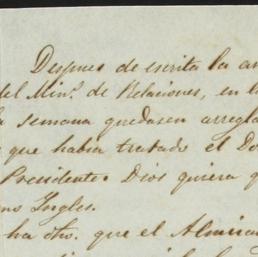 Despues de escrita la an
del Minº. de Relaciones, en l
a semana quedasen arregla
que habia tratado el Do
Presidente. Dios quiera q
no Ingles.
ha dho. que el Almiran